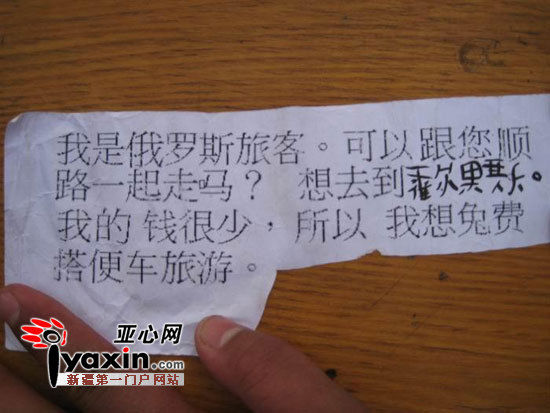 我是俄罗斯旅客。可以跟您顺
路一起走吗？ 想去到 。
我的 钱很少，所以 我想免费
搭便车旅游。
亚心网
iyaxin.com
新疆第一门户网站